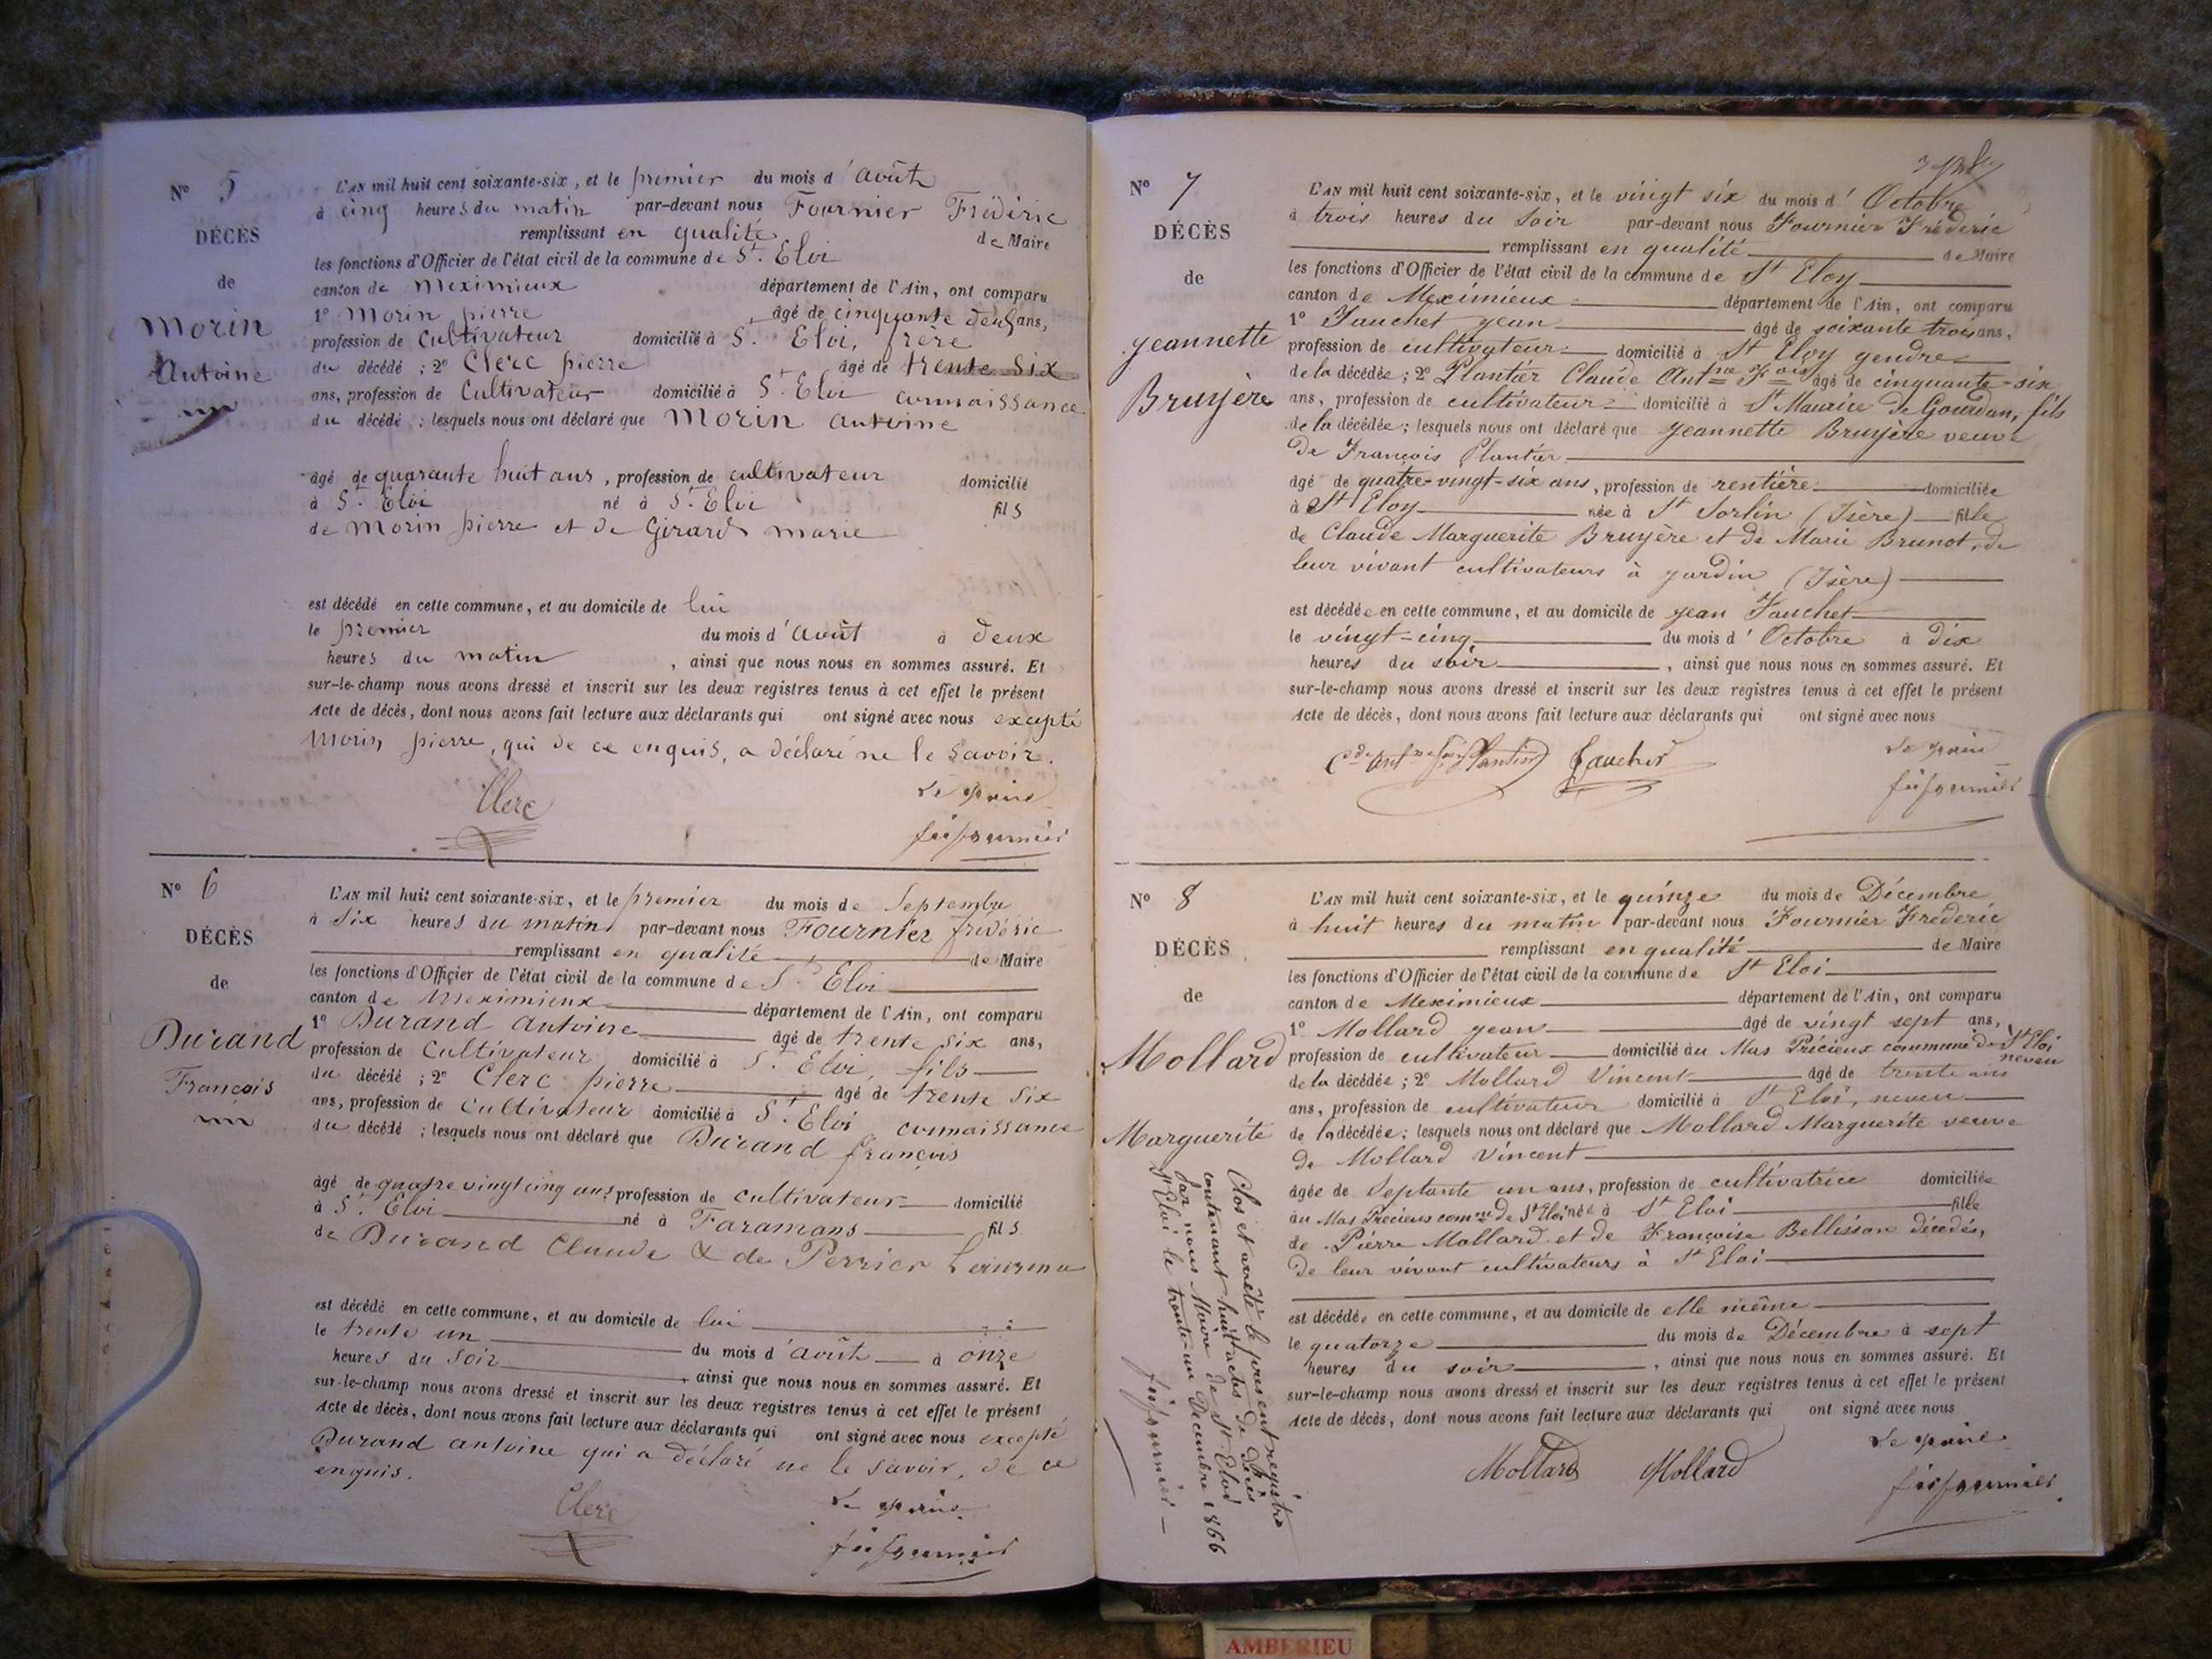 N° 5
DÉCÈS
de
Morin
Antoine
L'AN mil huit cent soixante-six, et le premier du mois d'Août
à cinq heures du matin par-devant nous Fournier Frédéric
remplissant en qualité de Maire
les fonctions d'Officier de l'état civil de la commune de St. Eloi
canton de Meximieux département de l'Ain, ont comparu
1° Morin pierre âgé de cinquante deux ans,
profession de Cultivateur domicilié à St. Eloi, frère
du décédé ; 2° Clerc pierre âgé de trente six
ans, profession de Cultivateur domicilié à St. Eloi connaissance
du décédé ; lesquels nous ont déclaré que Morin antoine
âgé de quarante huit ans, profession de cultivateur domicilié
à St. Eloi né à St. Eloi fils
de Morin pierre et de Girard marie
est décédé en cette commune, et au domicile de lui
le premier du mois d'août à deux
heures du matin, ainsi que nous nous en sommes assuré. Et
sur-le-champ nous avons dressé et inscrit sur les deux registres tenus à cet effet le présent
Acte de décès, dont nous avons fait lecture aux déclarants qui ont signé avec nous excepté
Morin pierre, qui de ce enquis, a déclaré ne le savoir.
Clerc
Le maire
N° 6
DÉCÈS
de
Durand
François
L'AN mil huit cent soixante-six, et le premier du mois de Septembre
à Six heures du matin par-devant nous Fournier frédéric
remplissant en qualité de Maire
les fonctions d'Officier de l'état civil de la commune de St. Eloi
canton de Meximieux département de l'Ain, ont comparu
1° Durand Antoine âgé de trente six ans,
profession de Cultivateur domicilié à St. Eloi, fils
du décédé ; 2° Clerc pierre âgé de trente six
ans, profession de Cultivateur domicilié à St. Eloi connaissance
du décédé ; lesquels nous ont déclaré que Durand françois
âgé de quatre vingt cinq ans profession de cultivateur domicilié
à St. Eloi né à Faramans fils
de Durand Claude & de Perrier
est décédé en cette commune, et au domicile de lui
le trente un du mois d'août à onze
heures du Soir, ainsi que nous nous en sommes assuré. Et
sur-le-champ nous avons dressé et inscrit sur les deux registres tenus à cet effet le présent
Acte de décès, dont nous avons fait lecture aux déclarants qui ont signé avec nous excepté
Durand antoine qui a déclaré ne le savoir, de ce
enquis.
Clerc
Le maire
N° 7
DÉCÈS
de
Jeannette
Bruyère
L'AN mil huit cent soixante-six, et le vingt six du mois d'Octobre
à trois heures du soir par-devant nous Fournier Frédéric
remplissant en qualité de Maire
les fonctions d'Officier de l'état civil de la commune de St Eloy
canton de Meximieux département de l'Ain, ont comparu
1° Fauchet Jean âgé de soixante trois ans,
profession de cultivateur domicilié à St Eloy gendre
de la décédée ; 2° Plantier Claude Antne Fois âgé de cinquante-six
ans, profession de cultivateur domicilié à St Maurice de Gourdan, fils
de la décédée ; lesquels nous ont déclaré que Jeannette Bruyère veuve
de François Plantier
âgé de quatre-vingt-six ans, profession de rentière domiciliée
à St Eloy née à St Sorlin (Isère) fille
de Claude Marguerite Bruyère et de Marie Brunot, de
leur vivant cultivateurs à Jardin (Isère)
est décédée en cette commune, et au domicile de Jean Fauchet
le vingt-cinq du mois d'Octobre à dix
heures du soir, ainsi que nous nous en sommes assuré. Et
sur-le-champ nous avons dressé et inscrit sur les deux registres tenus à cet effet le présent
Acte de décès, dont nous avons fait lecture aux déclarants qui ont signé avec nous
Plantier Fauchet
Le maire
N° 8
DÉCÈS
de
Mollard
Marguerite
L'AN mil huit cent soixante-six, et le quinze du mois de Décembre
à huit heures du matin par-devant nous Fournier Fréderic
remplissant en qualité de Maire
les fonctions d'Officier de l'état civil de la commune de St Eloi
canton de Meximieux département de l'Ain, ont comparu
1° Mollard Jean âgé de vingt sept ans,
profession de cultivateur domicilié au Mas Précieux commune de St Eloi neveu
de la décédée ; 2° Mollard Vincent âgé de trente ans
ans, profession de cultivateur domicilié à St Eloi, neveu
de la décédée ; lesquels nous ont déclaré que Mollard Marguerite veuve
de Mollard Vincent
âgée de Septante un ans, profession de cultivatrice domiciliée
au Mas Précieux comne de St Eloi née à St Eloi fille
de Pierre Mollard et de Françoise Bellisson décédés,
de leur vivant cultivateurs à St Eloi
est décédée en cette commune, et au domicile de elle même
le quatorze du mois de Décembre à sept
heures du soir, ainsi que nous nous en sommes assuré. Et
sur-le-champ nous avons dressé et inscrit sur les deux registres tenus à cet effet le présent
Acte de décès, dont nous avons fait lecture aux déclarants qui ont signé avec nous
Mollard Mollard
Le maire
Clos et arrêté le présent registre
contenant huit actes de décès
par nous Maire de St Eloi
St Eloi le trente-un Decembre 1866
AMBERIEU